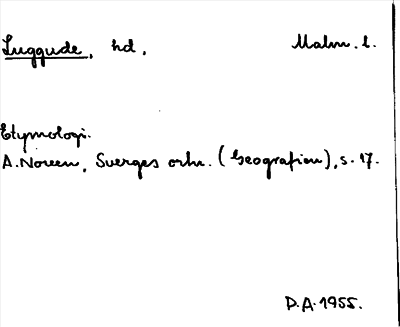 Luggude, hd, Malm. l.
Etymologi.
A. Noreen, Sverges ortn. (Geografien), s. 17.
D.A. 1955.